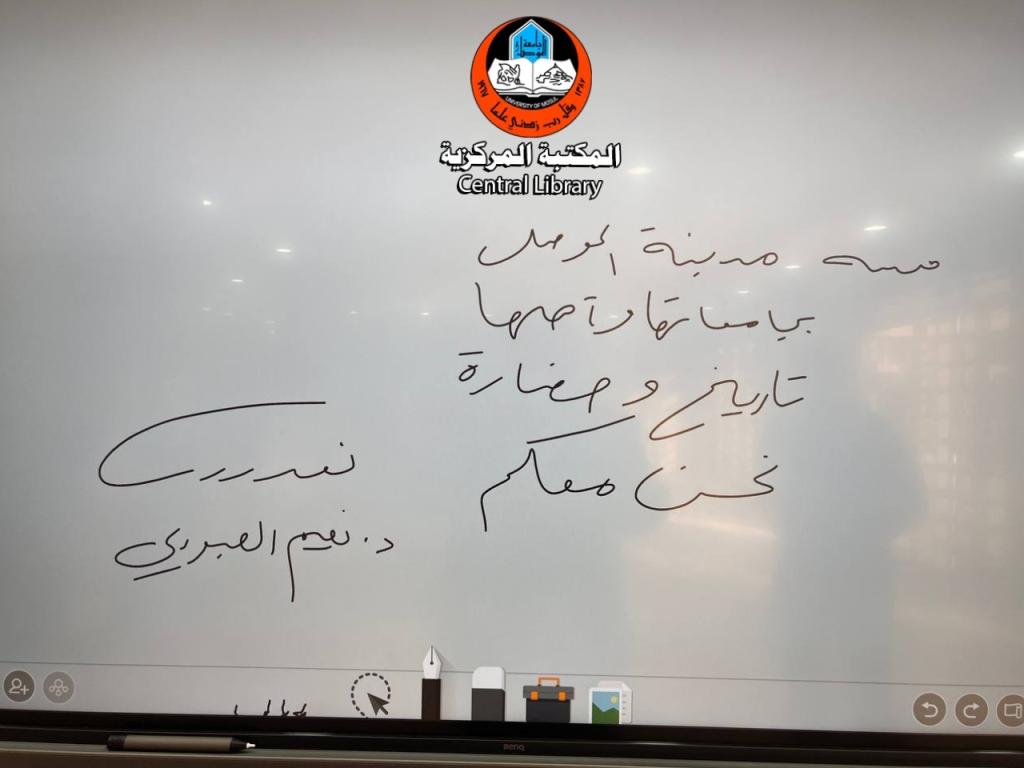 جامعة الموصل
UNIVERSITY OF MOSUL
١٩٦٧
١٣٨٧
وقل رب زدني علما
المكتبة المركزية
Central Library
مدينة الموصل
بجامعاتها وأصلها
تاريخ وحضارة
نحن معكم
د. نعيم العبودي
BenQ